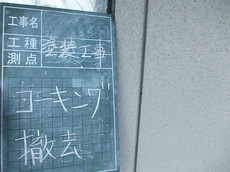 工事名
工種 塗装工事
測点
コーキング
撤去